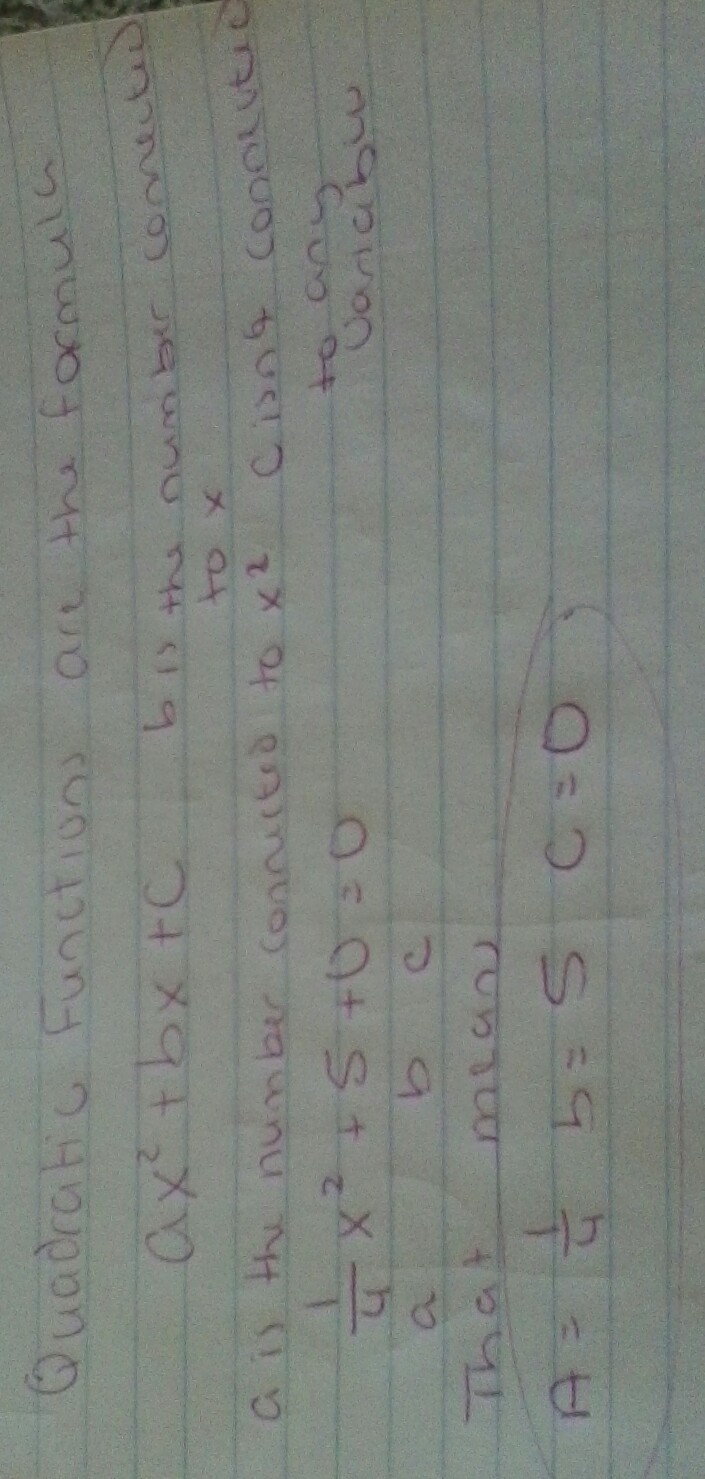 Quadratic Functions are the formula
ax² + bx + C b is the number connected
to x
a is the number connected to x² C isnt connected
to any
variable
1/4 x² + 5 + 0 = 0
a b c
That means
A = 1/4 b = 5 C = 0